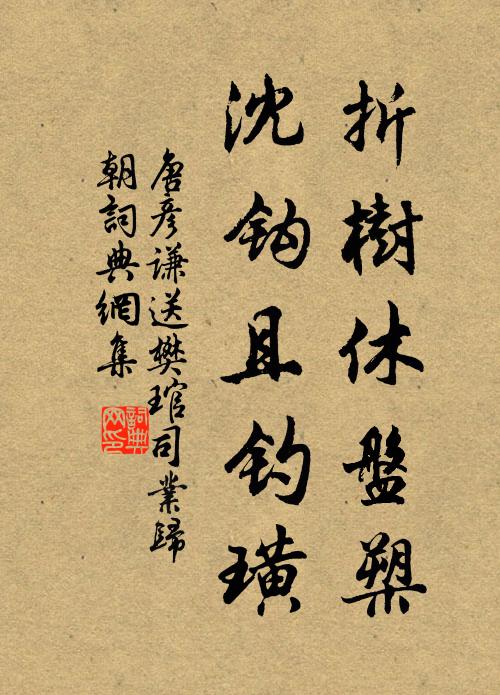 折樹休盤槊
沈鈎且釣璜
唐彥謙送樊琯司業歸
朝詞典網集
詞典
网印